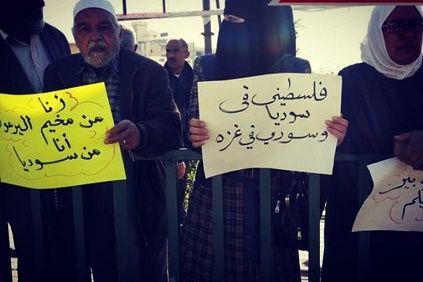 أنا
من مخيم اليرموك
أنا
من سوريا
فلسطيني في
سوريا
وسوري في غزه
بين